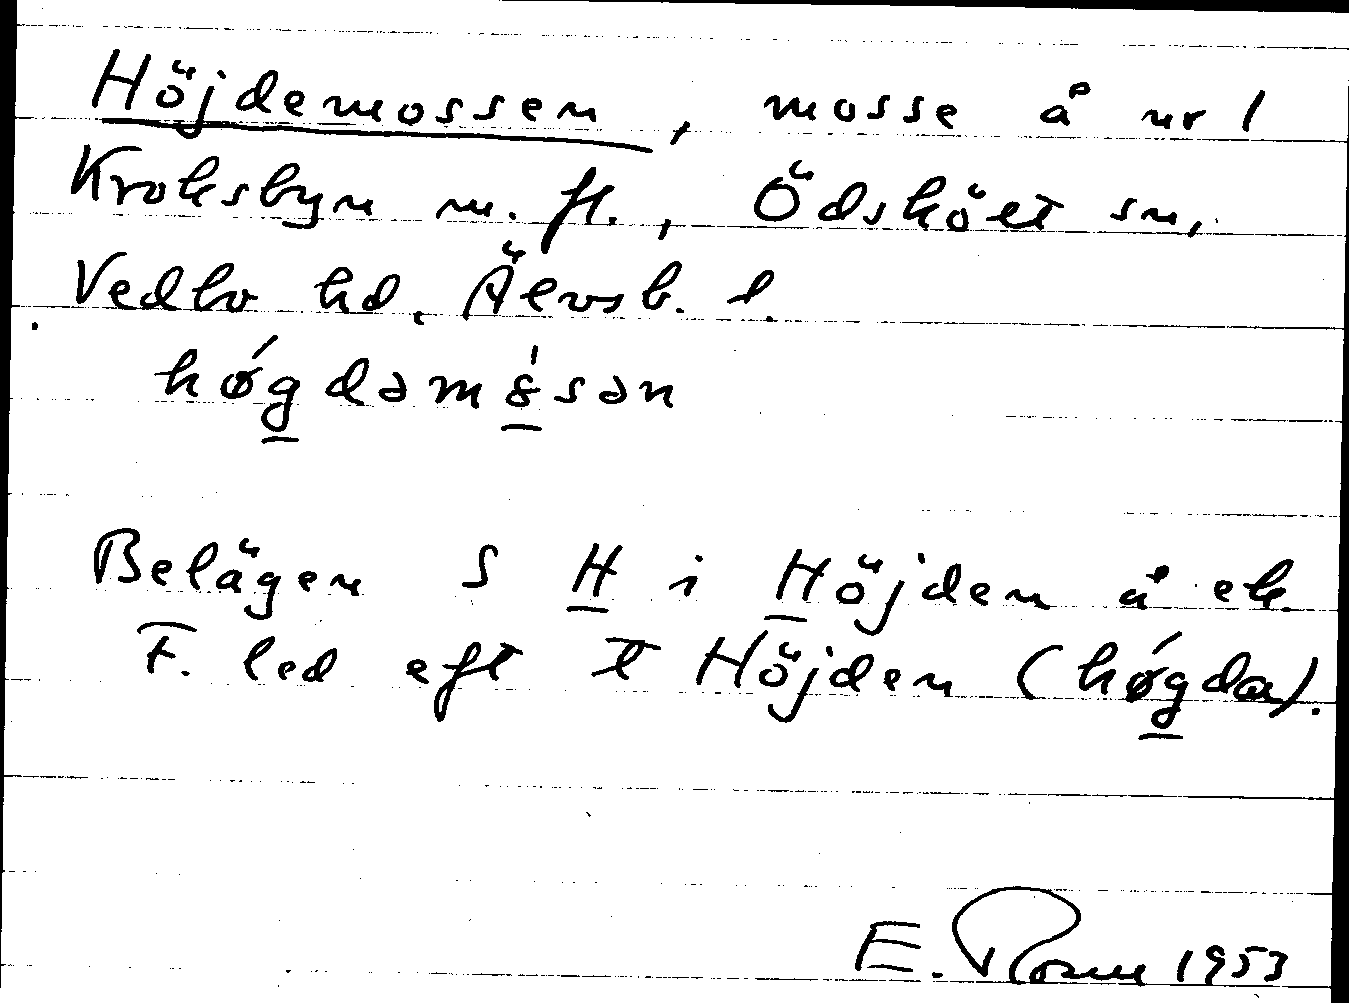 Höjdemossen, mosse å nr 1
Kroksbyn m. fl., Ödsköët sn,
Vedbo hd, Älvsb. l.
hǿgdamȣ́sən
Belägen S H i Höjden å ek.
F. led eft t Höjden (hǿgda).
E. Rosen 1953